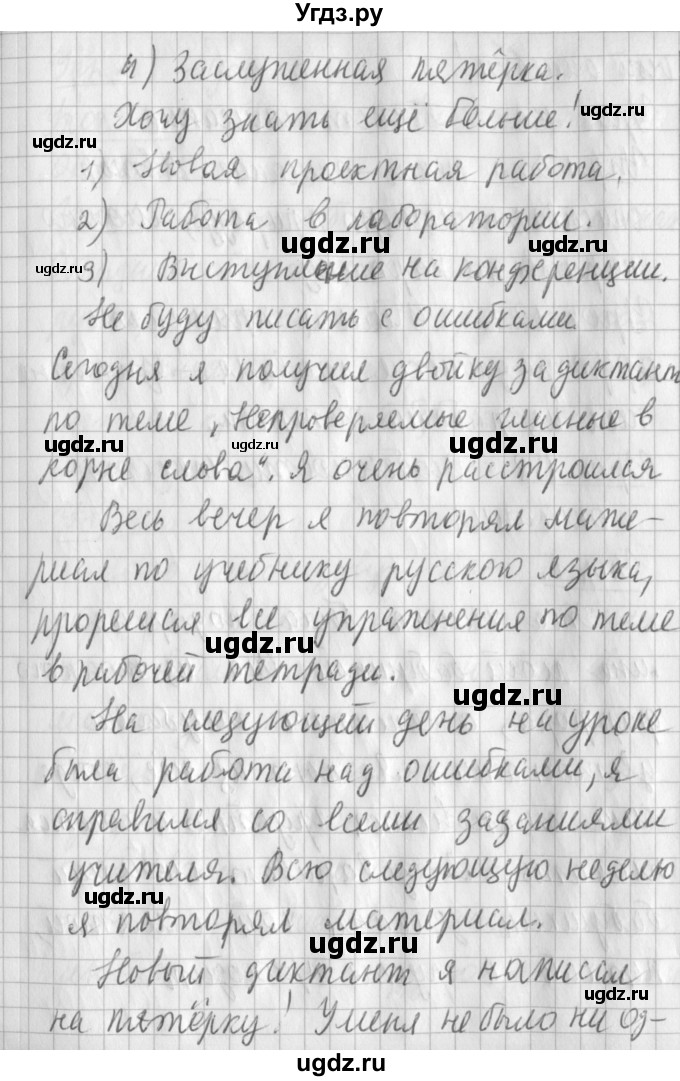 Угдз.ру
4) Заслуженная пятёрка.
Хочу знать ещё больше!
ugdz.ru
ugdz.ru
1) Новая проектная работа.
2) Работа в лаборатории.
ugdz.ru
ugdz.ru
ugdz.ru
3) Выступление на конференции.
Не буду писать с ошибками
ugdz.ru
Сегодня я получил двойку за диктант
по теме „Непроверяемые гласные в
ugdz.ru
ugdz.ru
ugdz.ru
корне слова“. Я очень расстроился
Весь вечер я повторял мате-
ugdz.ru
риал по учебнику русского языка,
прорешал все упражнения по теме
ugdz.ru
в рабочей тетради.
ugdz.ru
На следующий день на уроке
ugdz.ru
была работа над ошибками, я
ugdz.ru
справился со всеми заданиями
учителя. Всю следующую неделю
ugdz.ru
я повторял материал.
ugdz.ru
Новый диктант я написал
ugdz.ru
на пятёрку! У меня не было ни од-
ugdz.ru